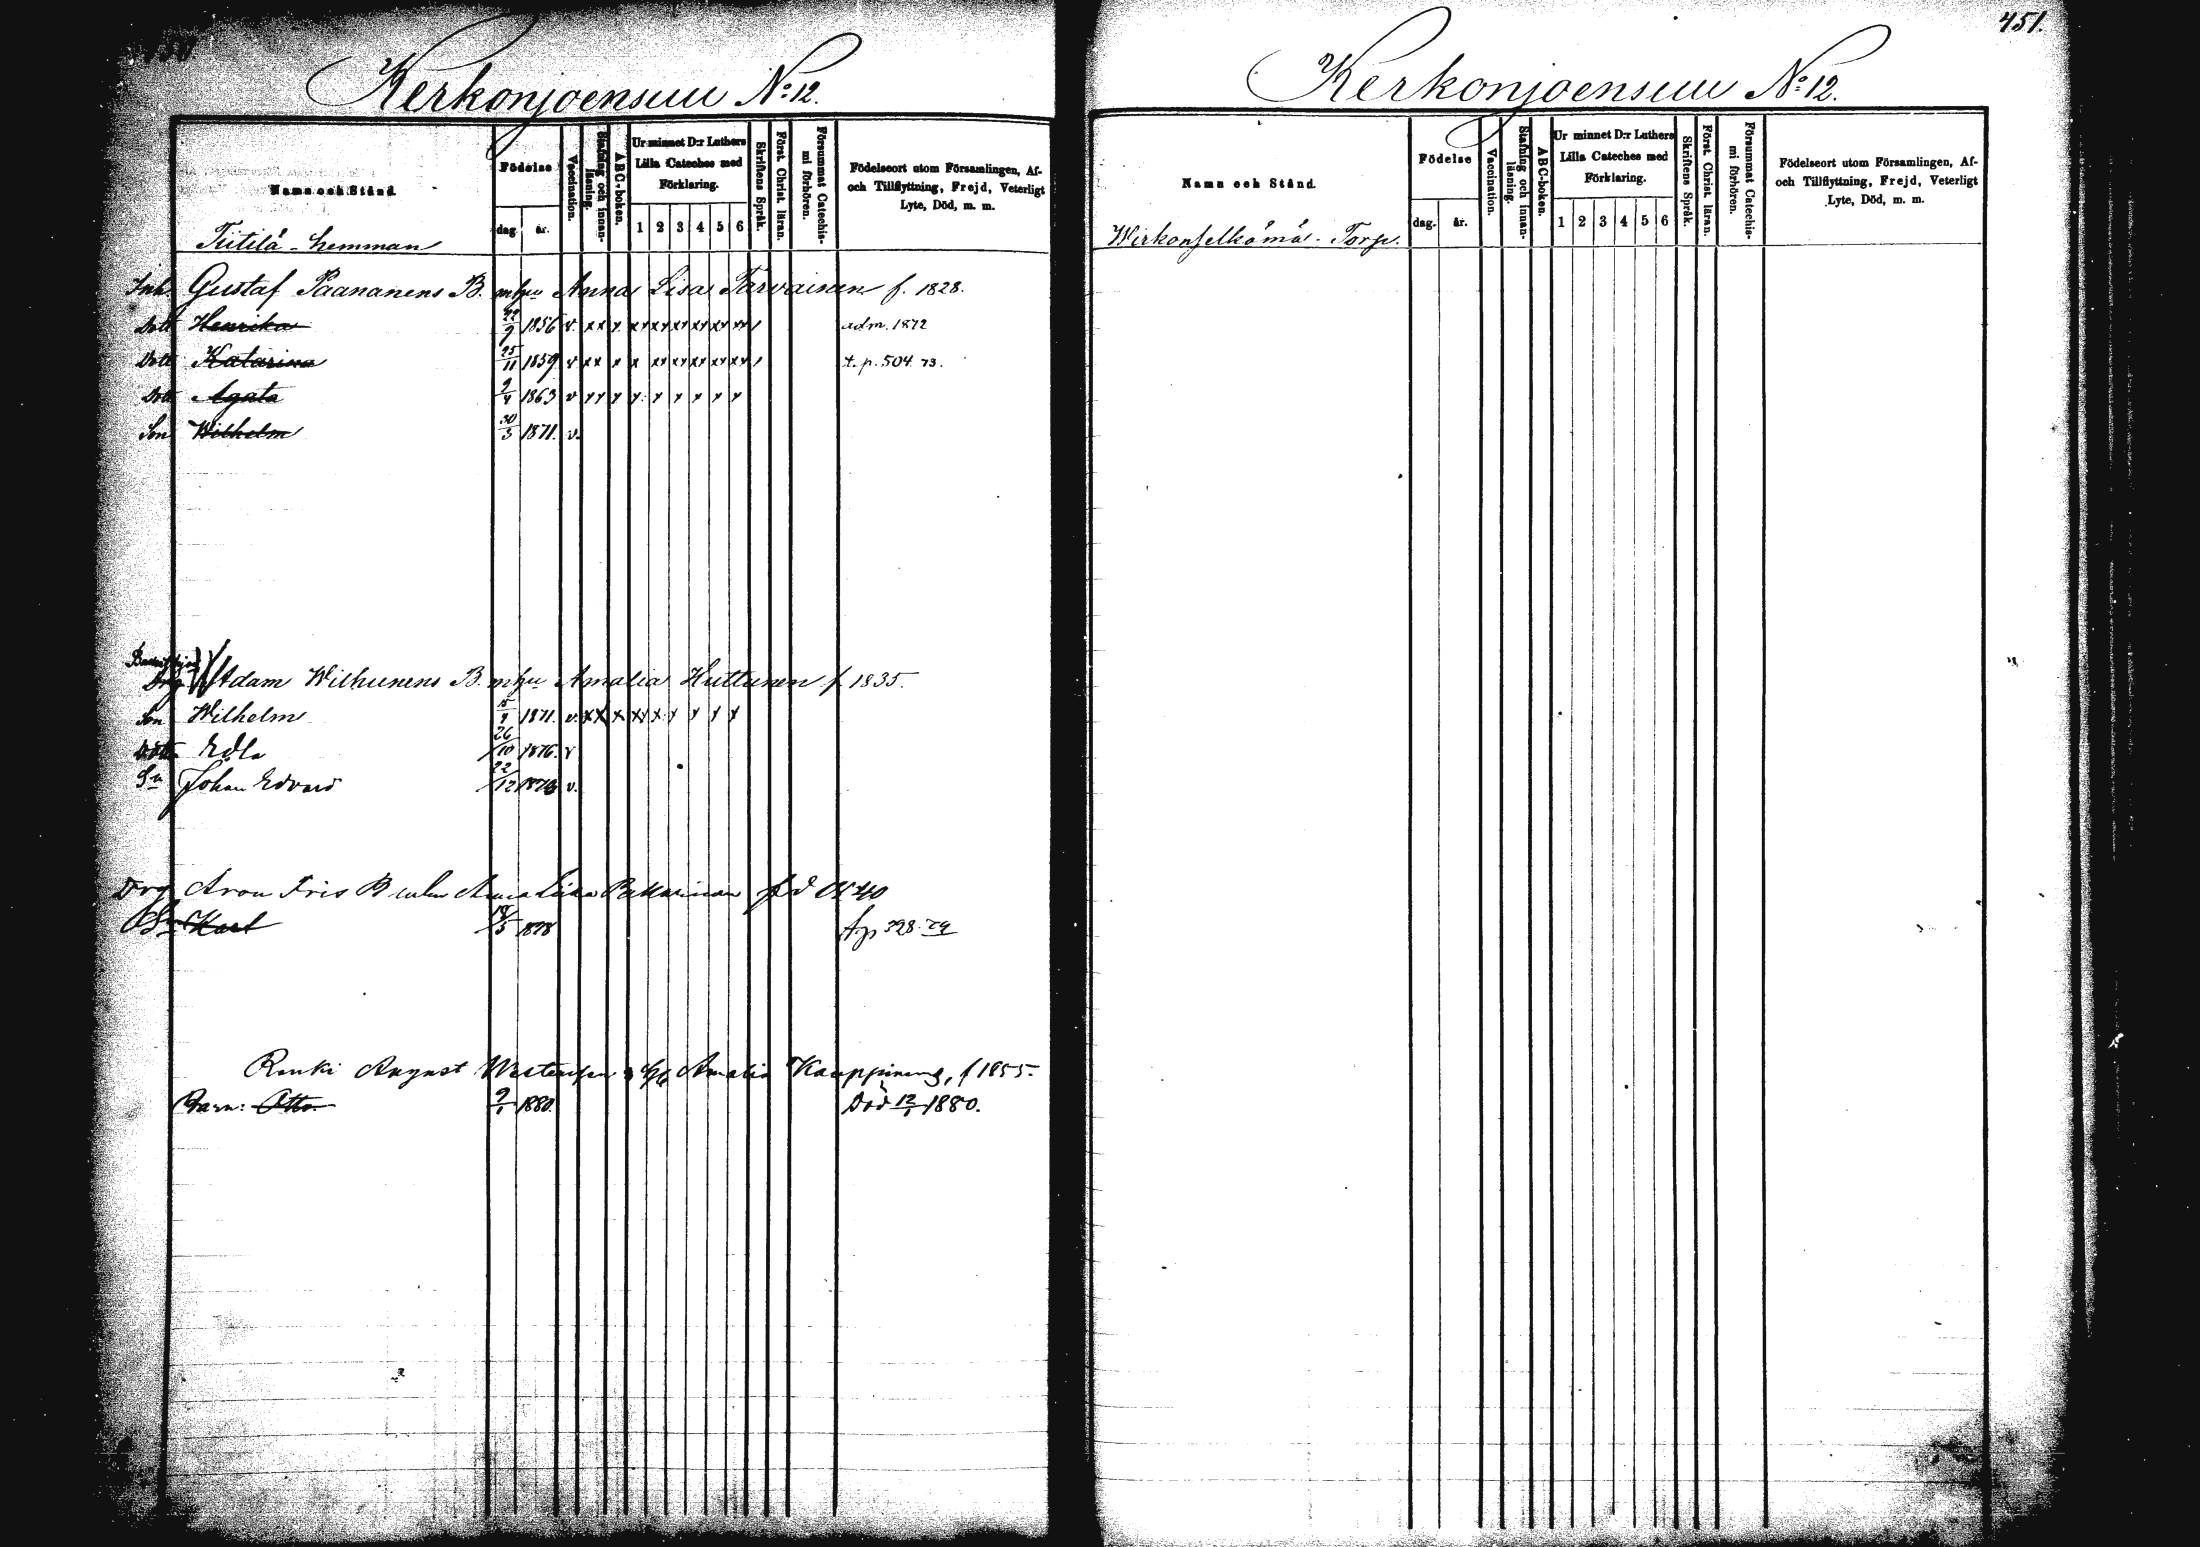 Kerkonjoensuu No: 12.
Namn och Stånd.
Födelse
dag
år.
Vaccination.
Stafning och innan-läsning.
ABC-boken.
Ur minnet D:r Luthers
Lilla Cateches med
Förklaring.
1 2 3 4 5 6
Skriftens Språk.
Först. Christ. läran.
Försummat Catechis-mi förhören.
Födelseort utom Församlingen, Af-
och Tillflyttning, Frejd, Veterligt
Lyte, Död, m. m.
Tiitilä - hemman
Inh. Gustaf Paananens B. m hu Anna Lisa Tarvainen f. 1828.
Dott Henrika 22/9 1856 v. xx x. xx xx xx xx xx xx / adm. 1872
Dott Katarina 25/11 1859 v xx x x xx xx xx xx xx / t. p. 504. 73.
Dott Agata 9/4 1863 v xx x x x x x x x
Son Wilhelm 30/3 1871. v.
Drg Adam Wilhunens B. m hu Amalia Huttunen f. 1835.
Son Wilhelm 1871. v. xx x xx x x x x x
Dott Edla 26/10 1876. v
Sn Johan Edvard 22/12 v.
Drg Aron Fris B
Sn Karl 18/5 1878 t.p 328. 79
Renki August Amalia Kauppinens, f 1855.
Barn: Otto. 9/1 1880. Död 12/1 1880.
451.
Kerkonjoensuu No: 12.
Namn och Stånd.
Födelse
dag.
år.
Vaccination.
Stafning och innan-läsning.
ABC-boken.
Ur minnet D:r Luthers
Lilla Cateches med
Förklaring.
1 2 3 4 5 6
Skriftens Språk.
Först. Christ. läran.
Försummat Catechis-mi förhören.
Födelseort utom Församlingen, Af-
och Tillflyttning, Frejd, Veterligt
Lyte, Död, m. m.
Wirkonselkämä - Torp.